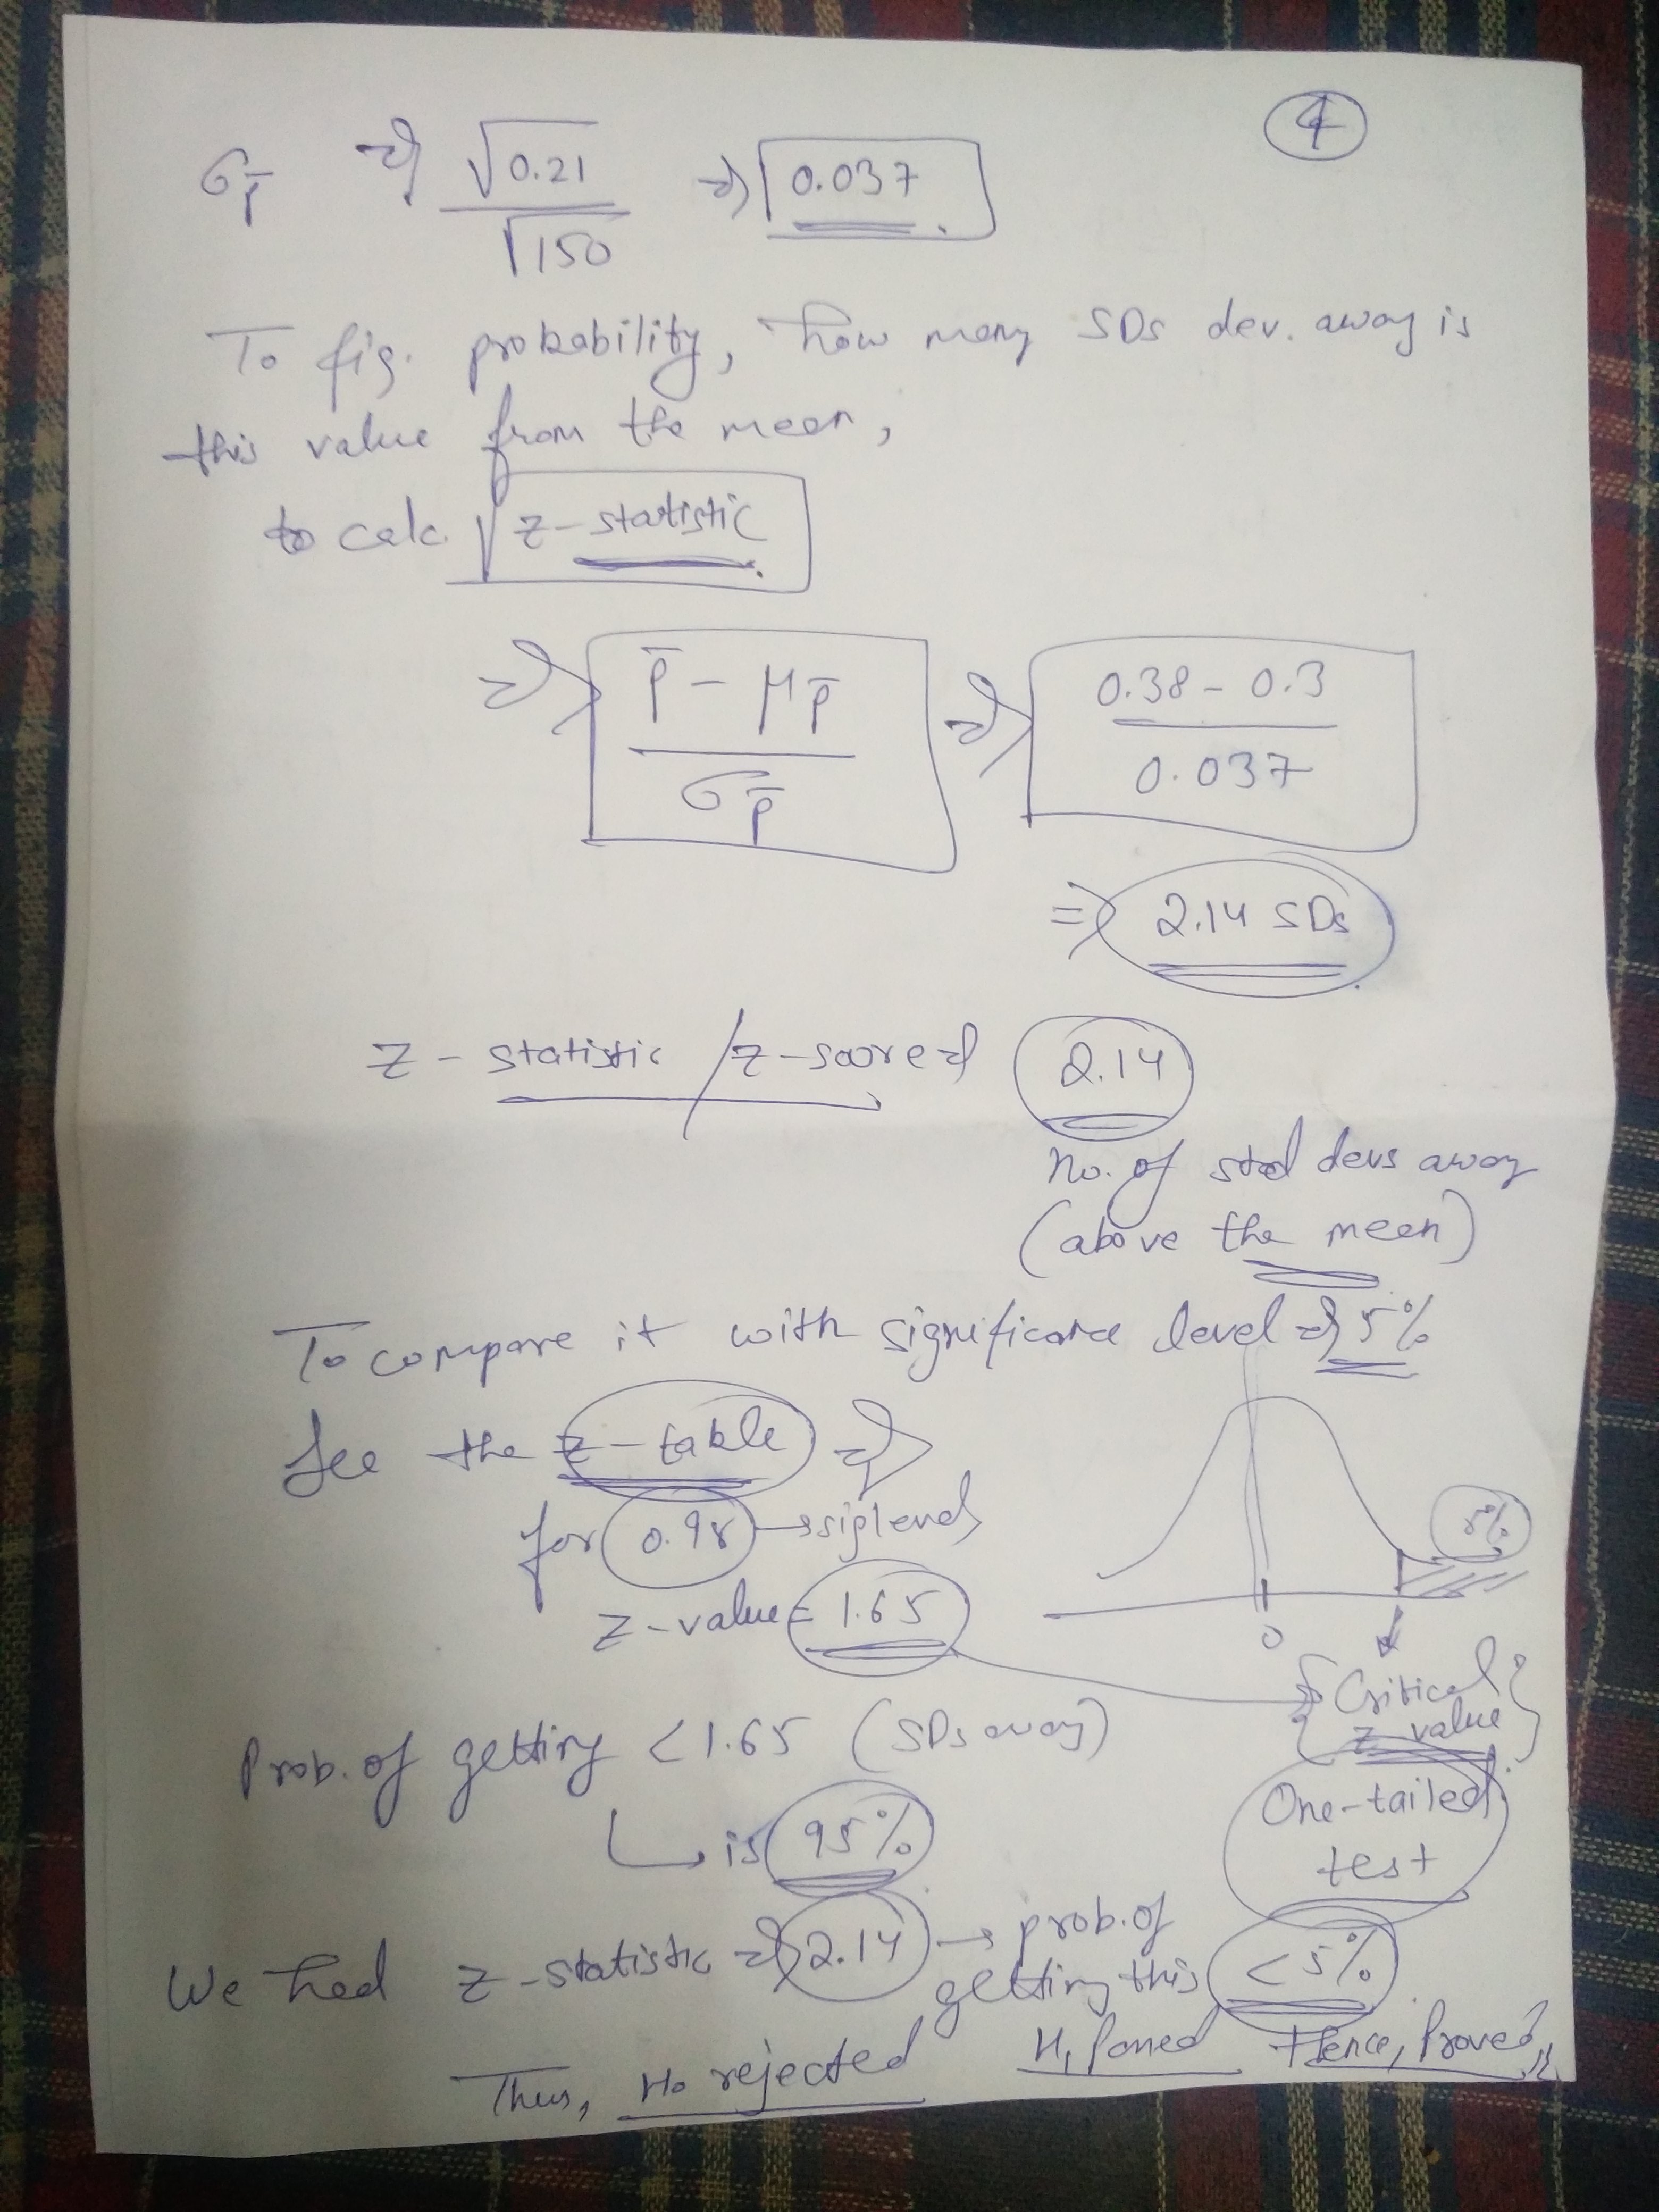 4
σp̄ ⇒ √0.21 / √150 ⇒ 0.037
To fig. probability, how many SDs dev. away is
this value from the mean,
to calc. z-statistic
⇒ p̄ - μp̄ / σp̄ ⇒ 0.38 - 0.3 / 0.037
⇒ 2.14 SDs
z-statistic / z-score ⇒ 2.14
no. of std devs away
(above the mean)
To compare it with significance level ⇒ 5%
See the z-table ⇒
for 0.95 → sig level
5%
z-value = 1.65
0
{Critical
z value}
Prob. of getting < 1.65 (SDs away)
One-tailed
test
↳ is 95%
We had z-statistic ⇒ 2.14 → prob. of
getting this < 5%
Thus, H₀ rejected H₁ Hence, Proved